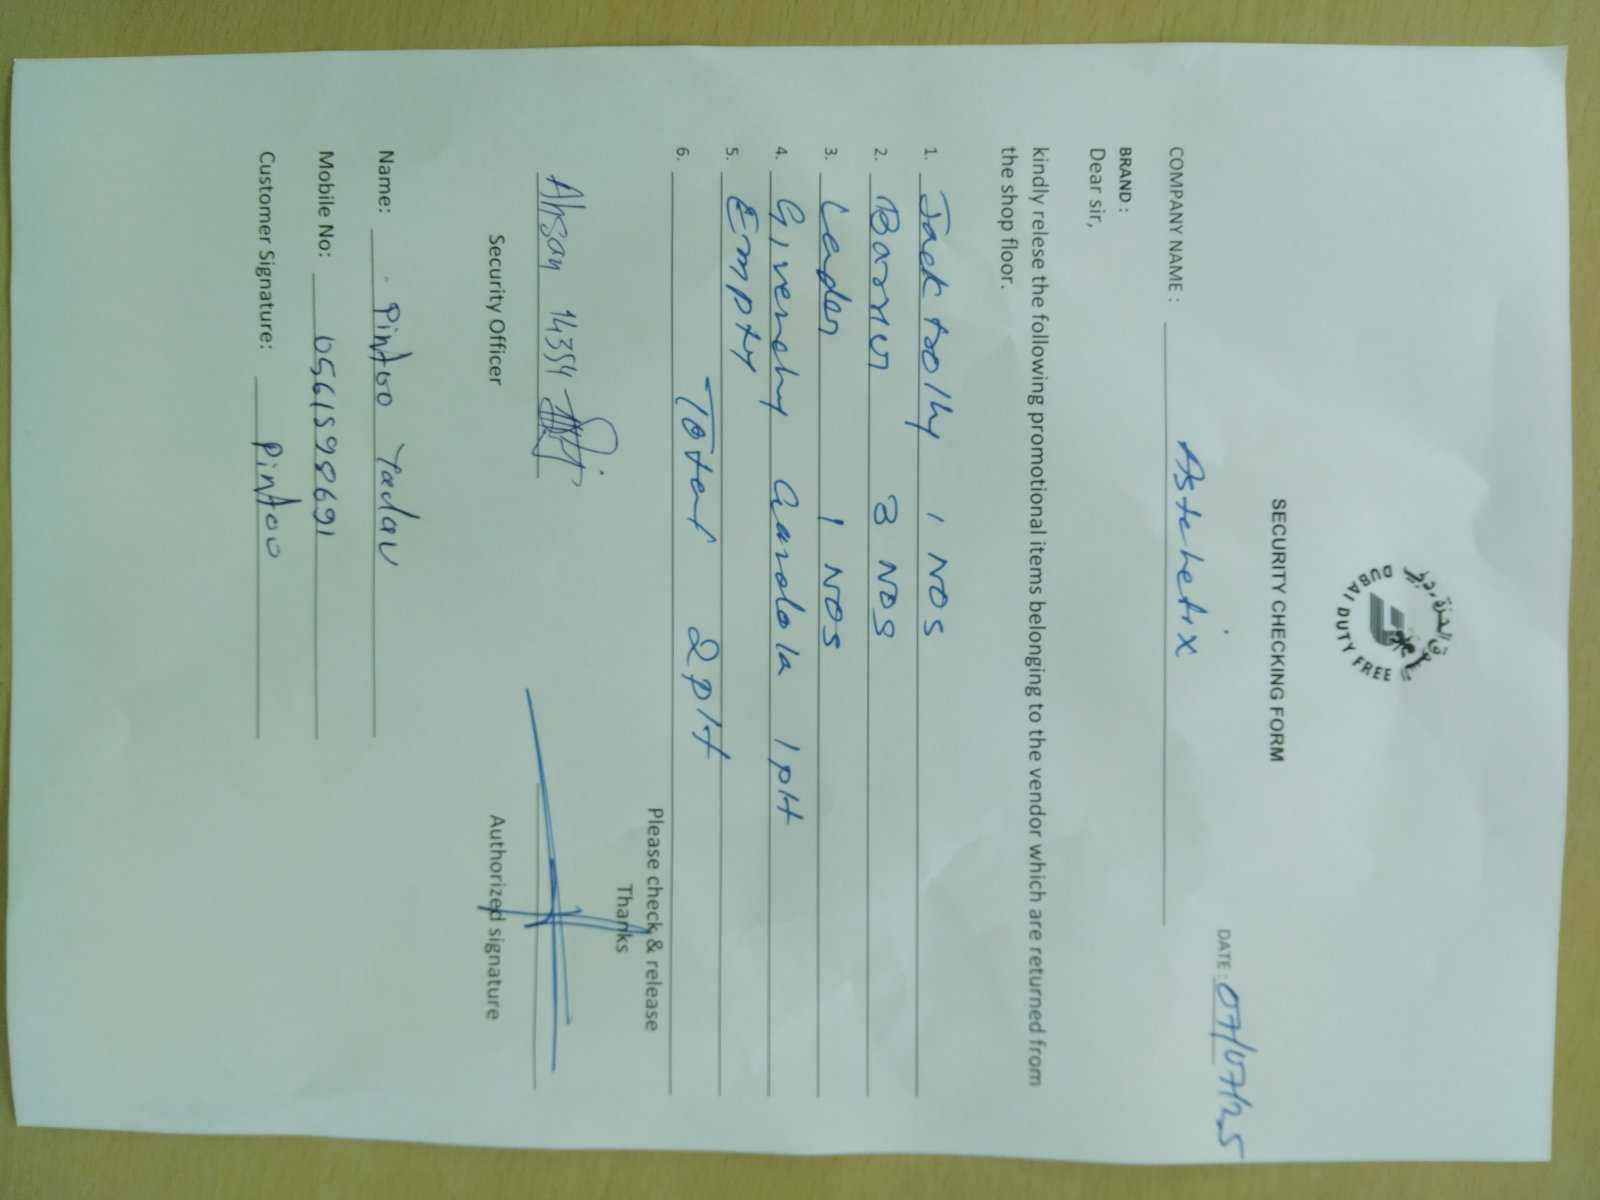 DUBAI DUTY FREE
SECURITY CHECKING FORM
DATE : 07/07/25
COMPANY NAME : Astehetix
BRAND :
Dear sir,
kindly relese the following promotional items belonging to the vendor which are returned from
the shop floor.
1. Jack trolly 1 NOS
2. 3 NOS
3. Leader 1 NOS
4. Givenchy Gandola 1 plt
5. Empty
6. Total 2 plt
Please check & release
Thanks
Ahsan 14354
Security Officer
Authorized signature
Name: Pintoo Yadav
Mobile No: 0561598691
Customer Signature: Pintoo